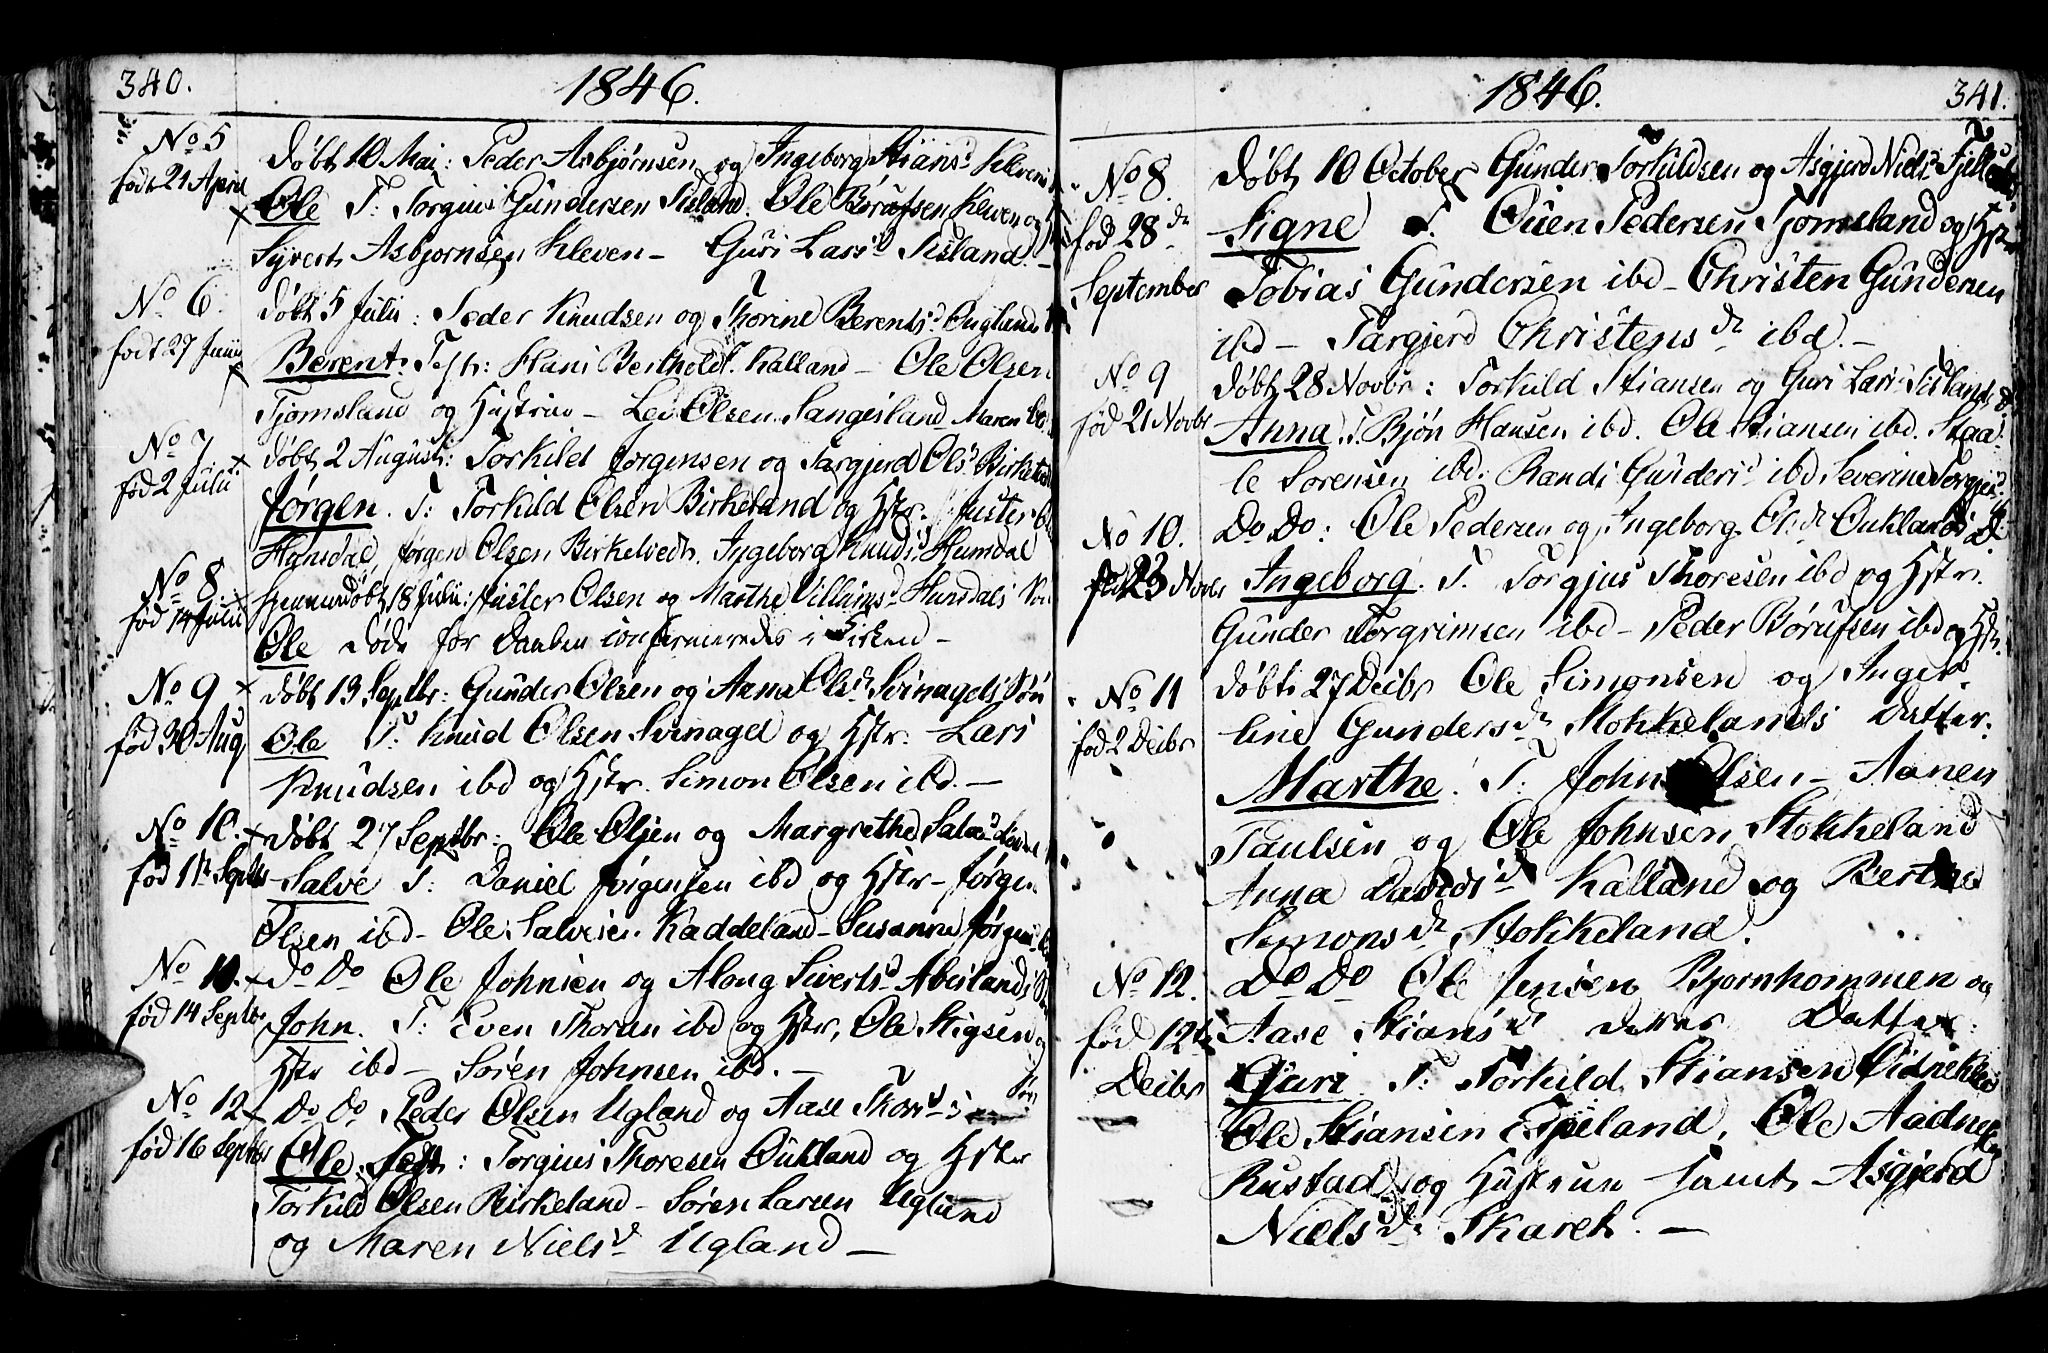 340.
1846.
No 5
født 21 April
døbt 10 Mai: Peder Asbjørnsen og Ingeborg Stiansd Klevens
Ole T: Torgius Gundersen Sisland. Ole Børufsen Kleven og
Syvert Asbjornsen Kleven - Guri Larsd Sisland. -
No 6.
født 27 Junii
døbt 5 Julii: Peder Knudsen og Thorine Berentsd Euglands
Berent. Test: Hans Bertholds. Kalland - Ole Olsen
Tjomsland og Hustrue - Lei Olsen Sangesland Maren
No 7.
fød 2 Julii
døbt 2 August: Torkild Jørgensen og Targjerd Olsd
Jørgen. T: Torkild Olsen Birkeland og Hstr. Juster
Homsdal, Jørgen Olsen Birketvedt. Ingeborg Knudsd Humsdal
No 8.
fød 14 Julii
hjemmedøbt 18 Julii: Juster Olsen og Marthe Villumsd Hunsdals
Ole Døde før Daaben confirmeredes i Kirken -
No 9
fød 30 Aug
døbt 13 Septbr: Gunder Olsen og Anna Olsd Svinagels Søn
Ole T. Knud Olsen Svinagel og Hstr. Lars
Knudsen ibd og Hstr. Simon Olsen ibd. -
No 10.
fød 11t Septbr
døbt 27 Septbr: Ole Olsen og Margrethe
Salve T: Daniel Jørgensen ibd og Hstr - Jørgen
Olsen ibd - Ole Salvesen Kaddeland - Susanne
No 11.
fød 14 Septbr
Do Do Ole Johnsen og Alaug Sivertsd Abeslands
John. T: Even Thorsen ibd og Hstr, Ole Stigsen og
Hstr ibd - Søren Johnsen ibd. -
No 12
fød 16 Septbr
Do Do Peder Olsen Ugland og Aase Thorsd Søn
Ole. Test: Torgius Thoresen Oukland og Hstr
Torkild Olsen Birkeland - Søren Larsen Ugland
og Maren Nielsd Ugland -
1846.
341.
No 8.
fød 28de
September
døbt 10 October Gunder Torkildsen og Asgjerd Nielsd
Signe T. Ouen Pedersen Tjomsland og Hstr
Tobias Gundersen ibd - Christen Gundersen
ibd - Targjerd Christensdr ibd. -
No 9
fød 21 Novbr
døbt 28 Novbr: Torkild Stiansen og Guri Larsd Sislands
Anna T. Bjøn Hansen ibd. Ole Stiansen ibd. Staa-
le Sorensen ibd: Randi Gundersd ibd Severine Torgjusd.
No 10.
fød 23 Novbr
Do Do: Ole Pedersen og Ingeborg Olsdr Ouklands D.
Ingeborg. T. Torgjus Thoresen ibd og Hstr.
Gunder Torgrimsen ibd - Peder Børufsen ibd og Hstr.
No 11
fød 2 Decbr
døbt 27 Decbr Ole Simonsen og Inger-
line Gundersdr Stokkelands Datter:
Marthe. T. John Olsen - Aanen
Paulsen og Ole Johnsen Stokkeland
Anna Davidsdr Kalland og Berthe
Simonsdr Stokkeland.
No 12.
fød 12te
Decbr
Do Do Ole Jensen Bjornhommen og
Aase Stiansdr deres Datter:
Guri T: Torkild Stiansen
Ole Stiansen Espeland, Ole Aadnes
Rustad og Hustrue samt Asgjerd
Nielsdr Skaret. -